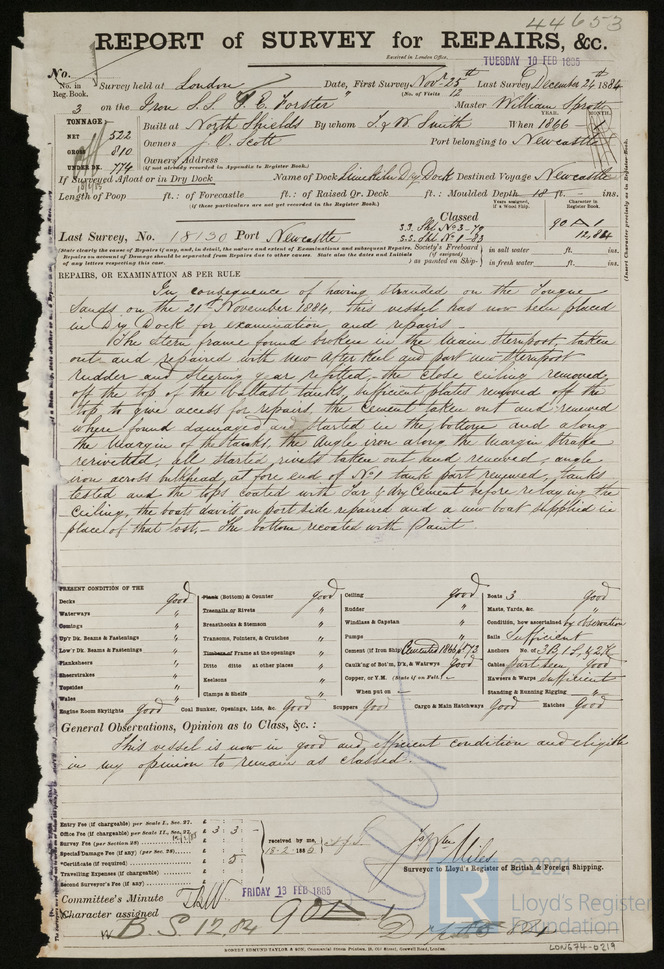 44653
REPORT of SURVEY for REPAIRS, &c.
Received in London Office,
TUESDAY 10 FEB 1885
No.
No. in Reg. Book. Survey held at London Date, First Survey Nov 25th Last Survey December 24th 1884
(No. of Visits 12)
3 on the Iron S.S. "T. E. Forster" Master William Sprott
TONNAGE
NET 522
GROSS 810
UNDER DK. 774
YEAR. MONTH.
Built at North Shields By whom T & W Smith When 1866
Owners J. O. Scott Port belonging to Newcastle
Owners' Address
(if not already recorded in Appendix to Register Book.)
If Surveyed Afloat or in Dry Dock Name of Dock Limekiln Dry Dock Destined Voyage Newcastle
Length of Poop ft.: of Forecastle ft.: of Raised Qr. Deck ft.: Moulded Depth 18 ft. - ins.
(if these particulars are not yet recorded in the Register Book.)
Years assigned, if a Wood Ship.
Character in Register Book.
Classed
90 A 1
12,84
S.S. Shl No 3-79
S.S. Shl No 1-83
Last Survey, No. 18130 Port Newcastle
Society's Freeboard (if assigned) as painted on Ship-
in salt water ft. ins.
in fresh water ft. ins.
(State clearly the cause of Repairs if any, and, in detail, the nature and extent of Examinations and subsequent Repairs.
Repairs on account of Damage should be separated from Repairs due to other causes. State also the dates and Initials
of any letters respecting this case.)
(Insert Character precisely as in Register Book.)
REPAIRS, OR EXAMINATION AS PER RULE
In consequence of having stranded on the Tongue
Sands on the 21st November 1884, this vessel has now been placed
in Dry Dock for examination and repairs
The Stern frame found broken in the Main Sternpost, taken
out and repaired with new After keel and part new Sternpost
rudder and steering gear refitted, the close ceiling removed
off the top of the ballast tanks, sufficient plates removed off the
top to give access for repairs, the cement taken out and renewed
where found damaged and started in the bottom and along
the Margin of the tanks, the angle iron along the Margin Strake
rerivetted, all started rivets taken out and renewed, angle
iron across bulkhead, at fore end of No 1 tank part renewed, tanks
tested and the tops coated with Tar & dry Cement before relaying the
Ceiling, the boats davits on port side repaired and a new boat supplied in
place of that lost - The bottom recoated with Paint.
PRESENT CONDITION OF THE
Decks good
Waterways "
Comings "
Up'r Dk. Beams & Fastenings "
Low'r Dk. Beams & Fastenings "
Planksheers "
Sheerstrakes "
Topsides "
Wales "
Engine Room Skylights good
Plank (Bottom) & Counter good
Treenails or Rivets "
Breasthooks & Stemson "
Transoms, Pointers, & Crutches "
Timbers or Frame at the openings "
Ditto ditto at other places "
Keelsons "
Clamps & Shelfs "
Coal Bunker, Openings, Lids, &c. good
Ceiling good
Rudder "
Windlass & Capstan "
Pumps "
Cement (if Iron Ship) Cemented 1866 & 73
Caulk'ng of Bot'm, D'k, & Watrwys good
Copper, or Y.M. (State if on Felt.) -
When put on -
Scuppers good
Cargo & Main Hatchways good
Boats 3 good
Masts, Yards, &c. "
Condition, how ascertained by observation
Sails Sufficient
Anchors No. of 3 B, 1 S, & 2 K
Cables part seen good
Hawsers & Warps sufficient
Standing & Running Rigging "
Hatches good
General Observations, Opinion as to Class, &c.:
This vessel is now in good and efficient condition and eligible
in my opinion to remain as classed.
Entry Fee (if chargeable) per Scale I., Sec. 27. £
Office Fee (if chargeable) per Scale II., Sec. 27. £ 3 : 3 : -
Survey Fee (per Section 28) £
Special Damage Fee (if any) (per Sec. 28) £
*Certificate (if required) £ 5
Travelling Expenses (if chargeable) £
Second Surveyor's Fee (if any) £
received by me,
18-2-1885
Miles
Surveyor to Lloyd's Register of British & Foreign Shipping.
Committee's Minute FRIDAY 13 FEB 1885
Character assigned 90 A 1
B.S. 12 84
ROBERT EDMUND TAYLOR & SON, Commercial Steam Printers, 19, Old Street, Goswell Road, London.
© 2021
LR
Lloyd's Register
Foundation
LON674-0219